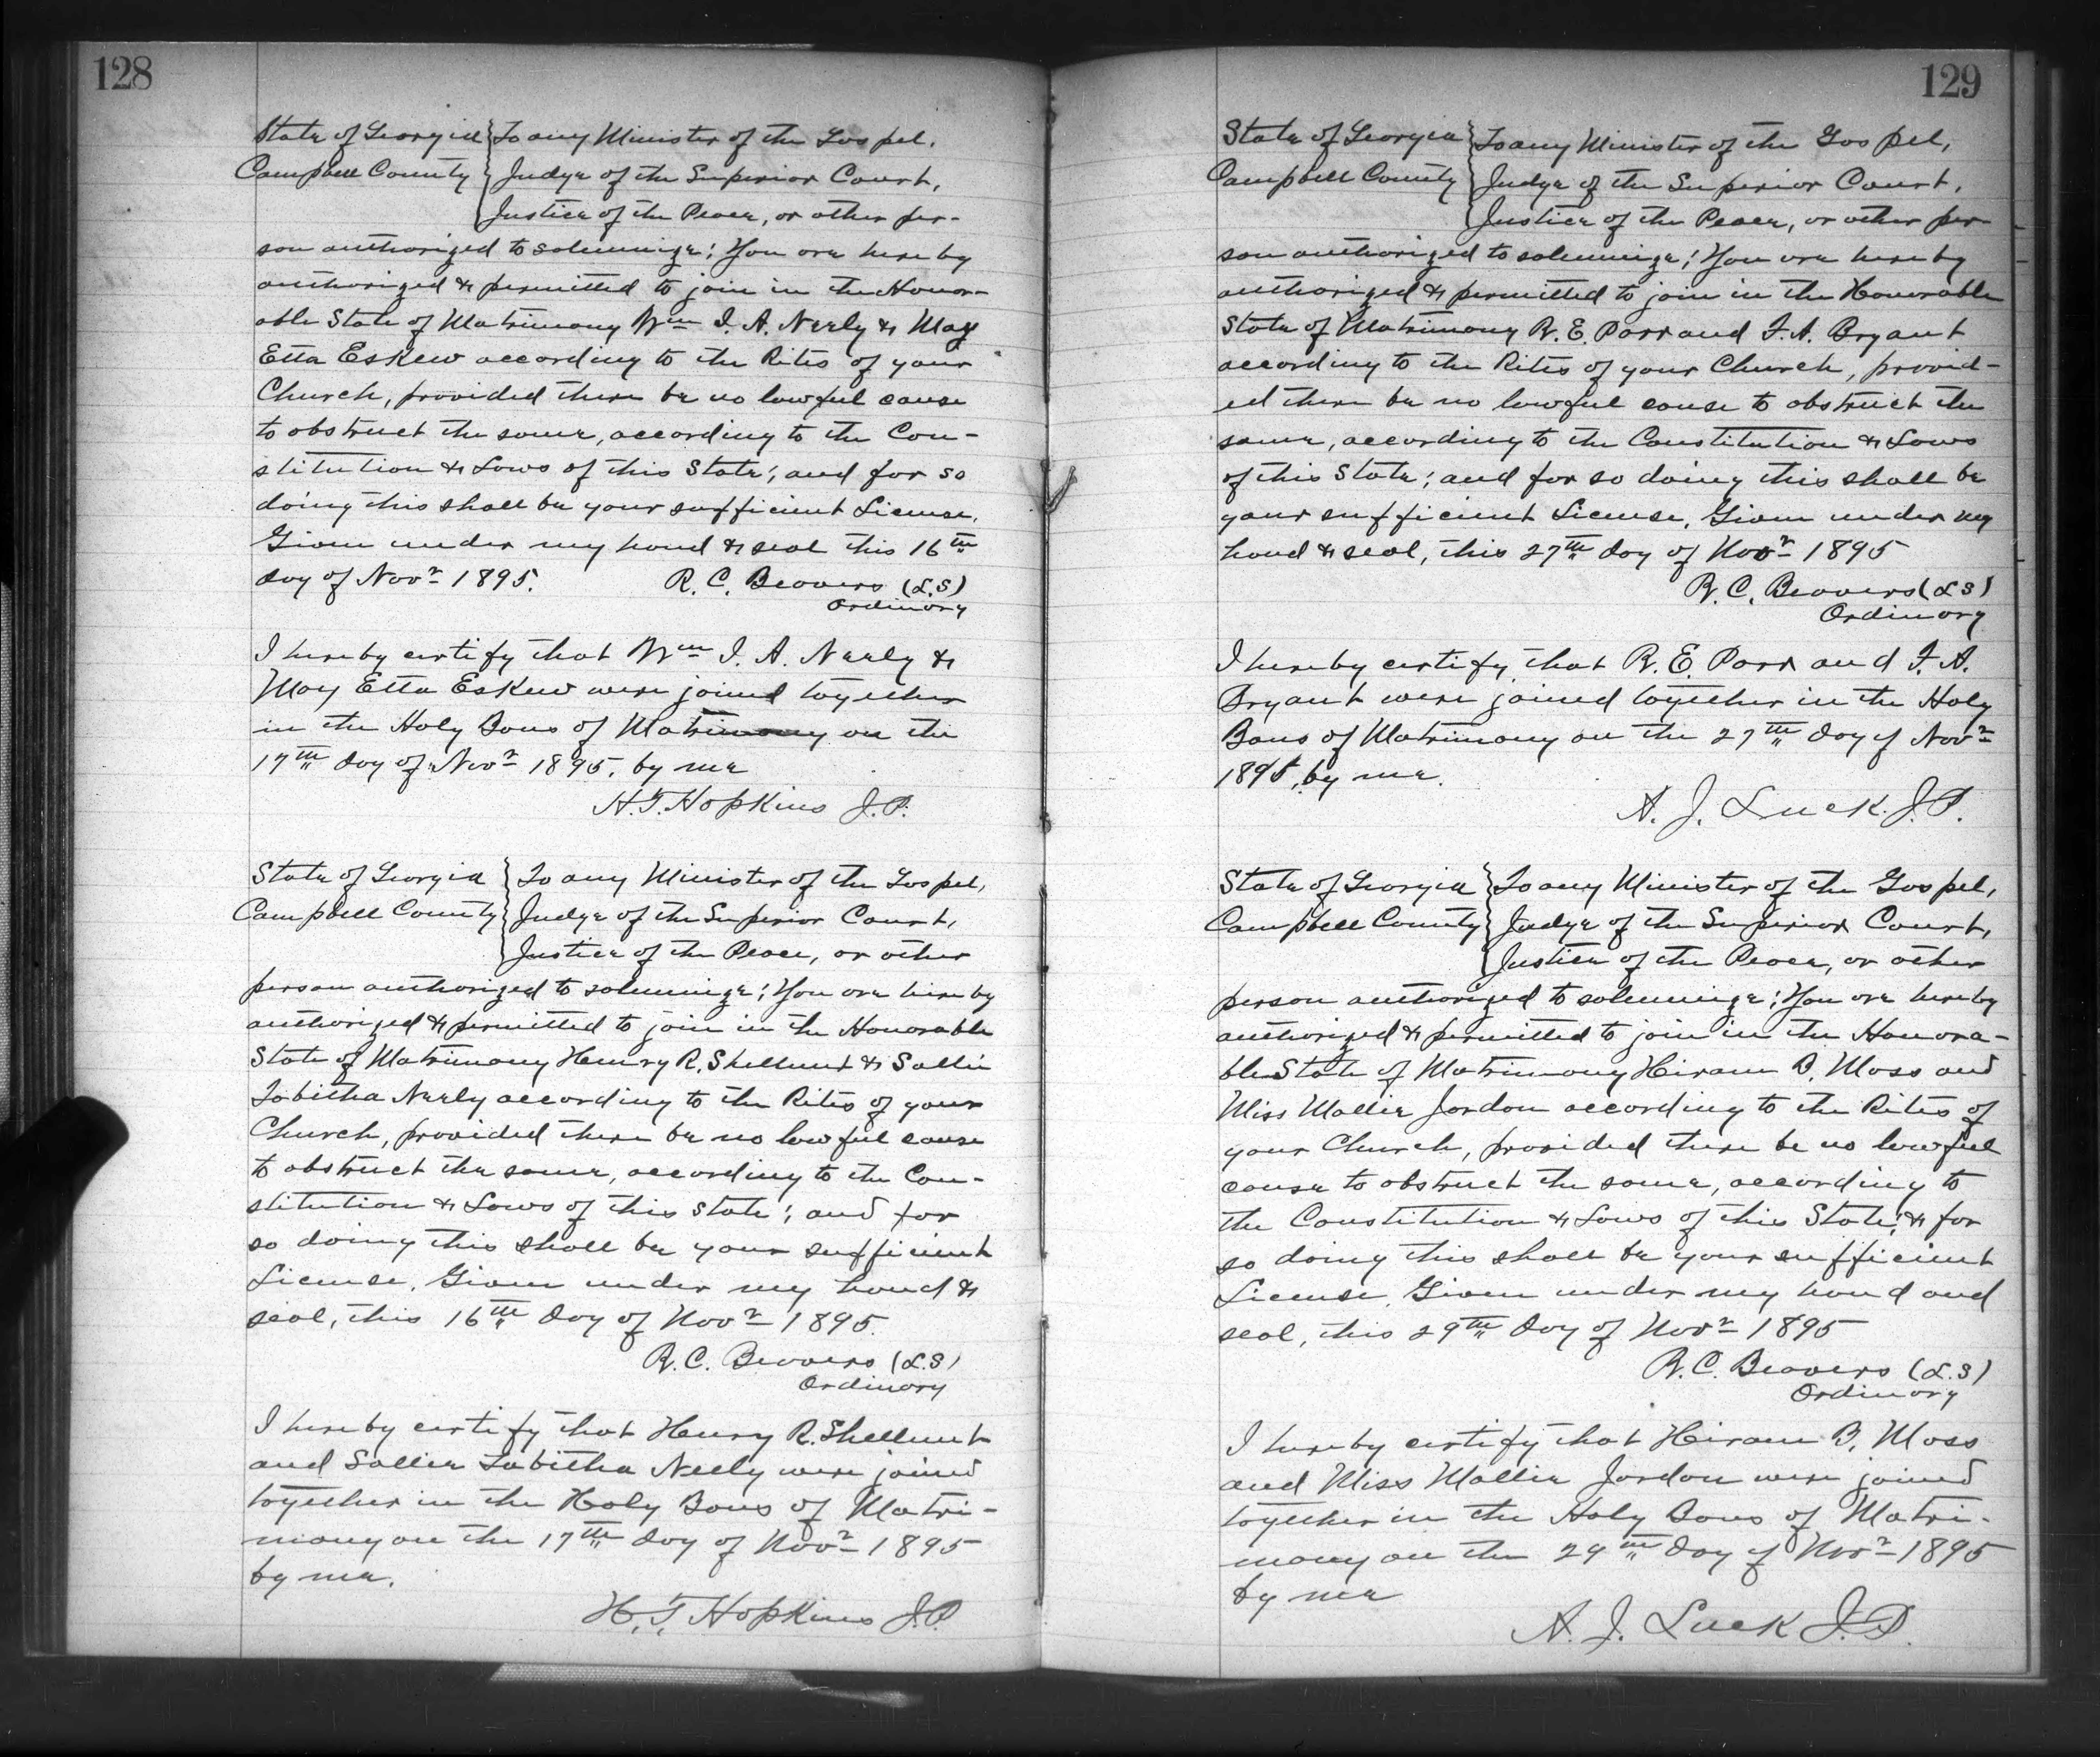 128
State of Georgia } To any Minister of the Gospel,
Campbell County } Judge of the Superior Court,
Justice of the Peace, or other per-
son authorized to solemnize; You are hereby
authorized & permitted to join in the Honor-
able State of Matrimony Wm I. A. Neely & May
Etta Eskew according to the Rites of your
Church, provided there be no lawful cause
to obstruct the same, according to the Con-
stitution & Laws of this State; and for so
doing this shall be your sufficient License.
Given under my hand & seal this 16th
day of Novr 1895. R. C. Beavers (L.S)
Ordinary
I hereby certify that Wm I. A. Neely &
May Etta Eskew were joined together
in the Holy Bans of Matrimony on the
17th day of Novr 1895, by me
H. T. Hopkins J.P.
State of Georgia } To any Minister of the Gospel,
Campbell County } Judge of the Superior Court,
Justice of the Peace, or other
person authorized to solemnize; You are hereby
authorized & permitted to join in the Honorable
State of Matrimony Henry R. Shellnut & Sallie
Tabitha Neely according to the Rites of your
Church, provided there be no lawful cause
to obstruct the same, according to the Con-
stitution & Laws of this State; and for
so doing this shall be your sufficient
License. Given under my hand &
seal, this 16th day of Novr 1895.
R. C. Beavers (L.S)
Ordinary
I hereby certify that Henry R. Shellnut
and Sallie Tabitha Neely were joined
together in the Holy Bans of Matri-
mony on the 17th day of Novr 1895
by me.
H. T. Hopkins J.P.
129
State of Georgia } To any Minister of the Gospel,
Campbell County } Judge of the Superior Court,
Justice of the Peace, or other per-
son authorized to solemnize; You are hereby
authorized & permitted to join in the Honorable
State of Matrimony R. E. Parr and F. A. Bryant
according to the Rites of your Church, provid-
ed there be no lawful cause to obstruct the
same, according to the Constitution & Laws
of this State; and for so doing this shall be
your sufficient License. Given under my
hand & seal, this 27th day of Novr 1895
R. C. Beavers (L S)
Ordinary
I hereby certify that R. E. Parr and F. A.
Bryant were joined together in the Holy
Bans of Matrimony on the 27th day of Novr
1895, by me.
A. J. Luck. J.P.
State of Georgia } To any Minister of the Gospel,
Campbell County } Judge of the Superior Court,
Justice of the Peace, or other
person authorized to solemnize; You are hereby
authorized & permitted to join in the Honora-
ble State of Matrimony Hiram B. Moss and
Miss Mallie Jordon according to the Rites of
your Church, provided there be no lawful
cause to obstruct the same, according to
the Constitution & Laws of this State; & for
so doing this shall be your sufficient
License. Given under my hand and
seal, this 29th day of Novr 1895
R. C. Beavers (L.S)
Ordinary
I hereby certify that Hiram B. Moss
and Miss Mallie Jordon were joined
together in the Holy Bans of Matri-
mony on the 29th day of Novr 1895
by me
A. J. Luck J.P.